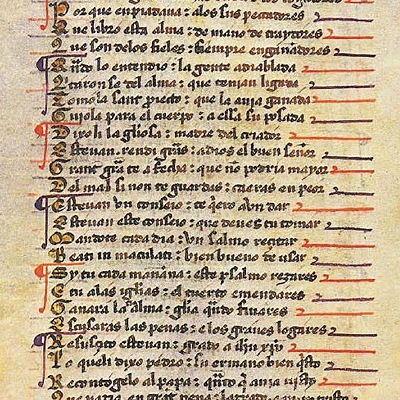 Por que enpiadaua : alos sus pecadores
Que libro esta alma : de mano de traytores
Que son delos fieles : siempre engañadores
Qñdo lo entendio : la gente adiablada
Quitaron se del alma : que tenian ligada
Tomola sant p̃iecto : que la auia ganada
Guiola para el cuerpo : a essa su posada
Dixoli la gl̃iosa : madre del criador
Esteuan . rendi gr̃as : a dios el buen señor
Grant gr̃a te a fecha : que nõ podria mayor
Del mal si non te guardas : caeras en peor
Esteuan vn conseio : te q̃ero avn dar
Esteuan este conseio : que deues tu tomar
Mandote cada dia : vn salmo rezar
Beati in maculati : bien bueno te usar
Sy tu cada mañana : este psalmo rezares
E tu alas igl̃ias : el tuerto emendares
Ganara la alma : gl̃ia qñdo finares
Escusaras las penas : e los graues logares
Resusçito esteuan : grado a ih̃u xp̃o
Lo queli dixo pedro : su ermano bien q̃sto
Recontogelo al papa : qñto q̃ auia uisto
Que yazia en grãt pena : lazrado e